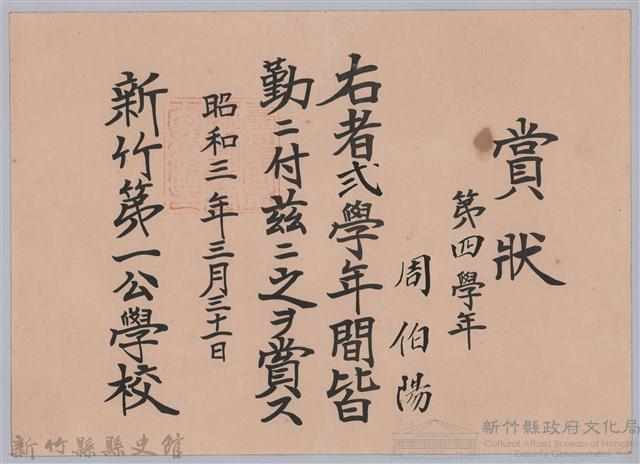 賞狀
第四學年
周伯陽
右者弍學年間皆
勤ニ付茲ニ之ヲ賞ス
昭和三年三月三十一日
新竹第一公學校
新竹縣縣史館
新竹縣政府文化局
Cultural Affairs Bureau of Hsinchu
County Government